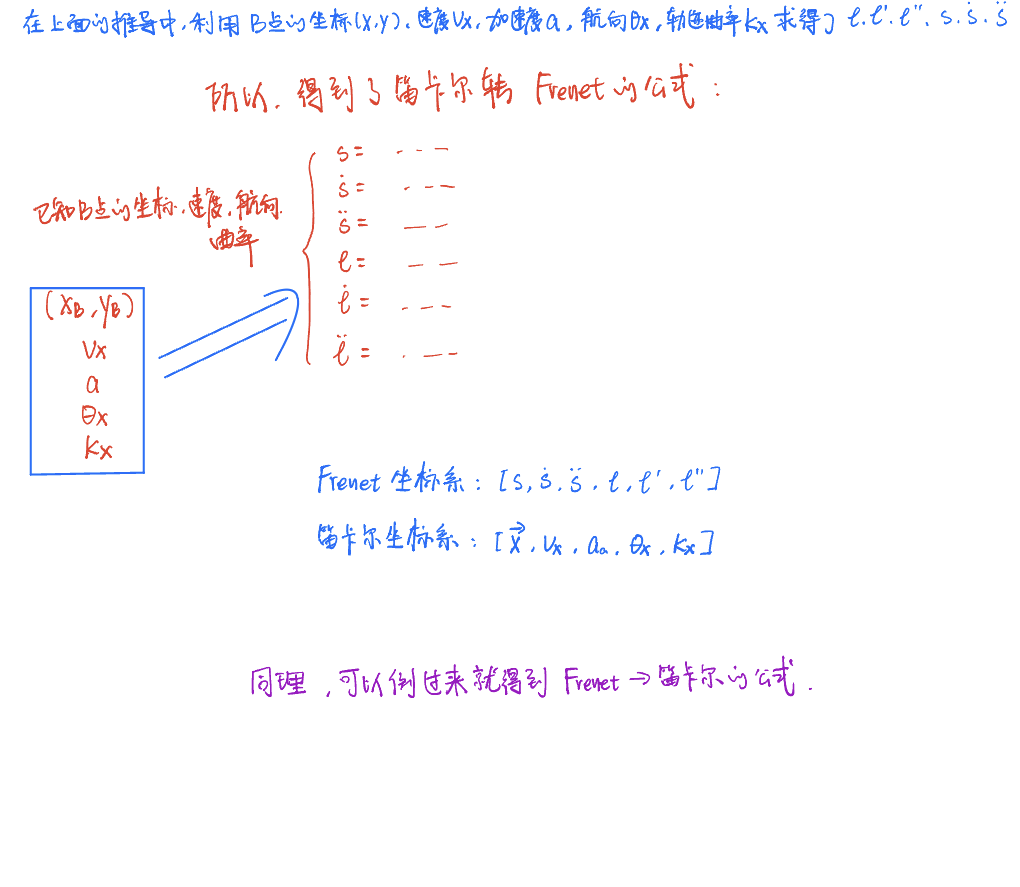 在上面的推导中,利用B点的坐标(x,y),速度Vx,加速度a,航向θx,轨迹曲率kx求得了 ℓ.ℓ'.ℓ''. s.ṡ.s̈
所以,得到了笛卡尔转 Frenet的公式:
s= ---
ṡ= ---
s̈= ---
ℓ= ---
ℓ̇= ---
ℓ̈= ---
已知B点的坐标.速度.航向.
曲率
(xB,yB)
Vx
a
θx
Kx
Frenet 坐标系:[s,ṡ.s̈.ℓ,ℓ',ℓ'']
笛卡尔坐标系:[x⃗,Vx,aₐ,θx,Kx]
同理,可以倒过来就得到 Frenet→笛卡尔的公式.